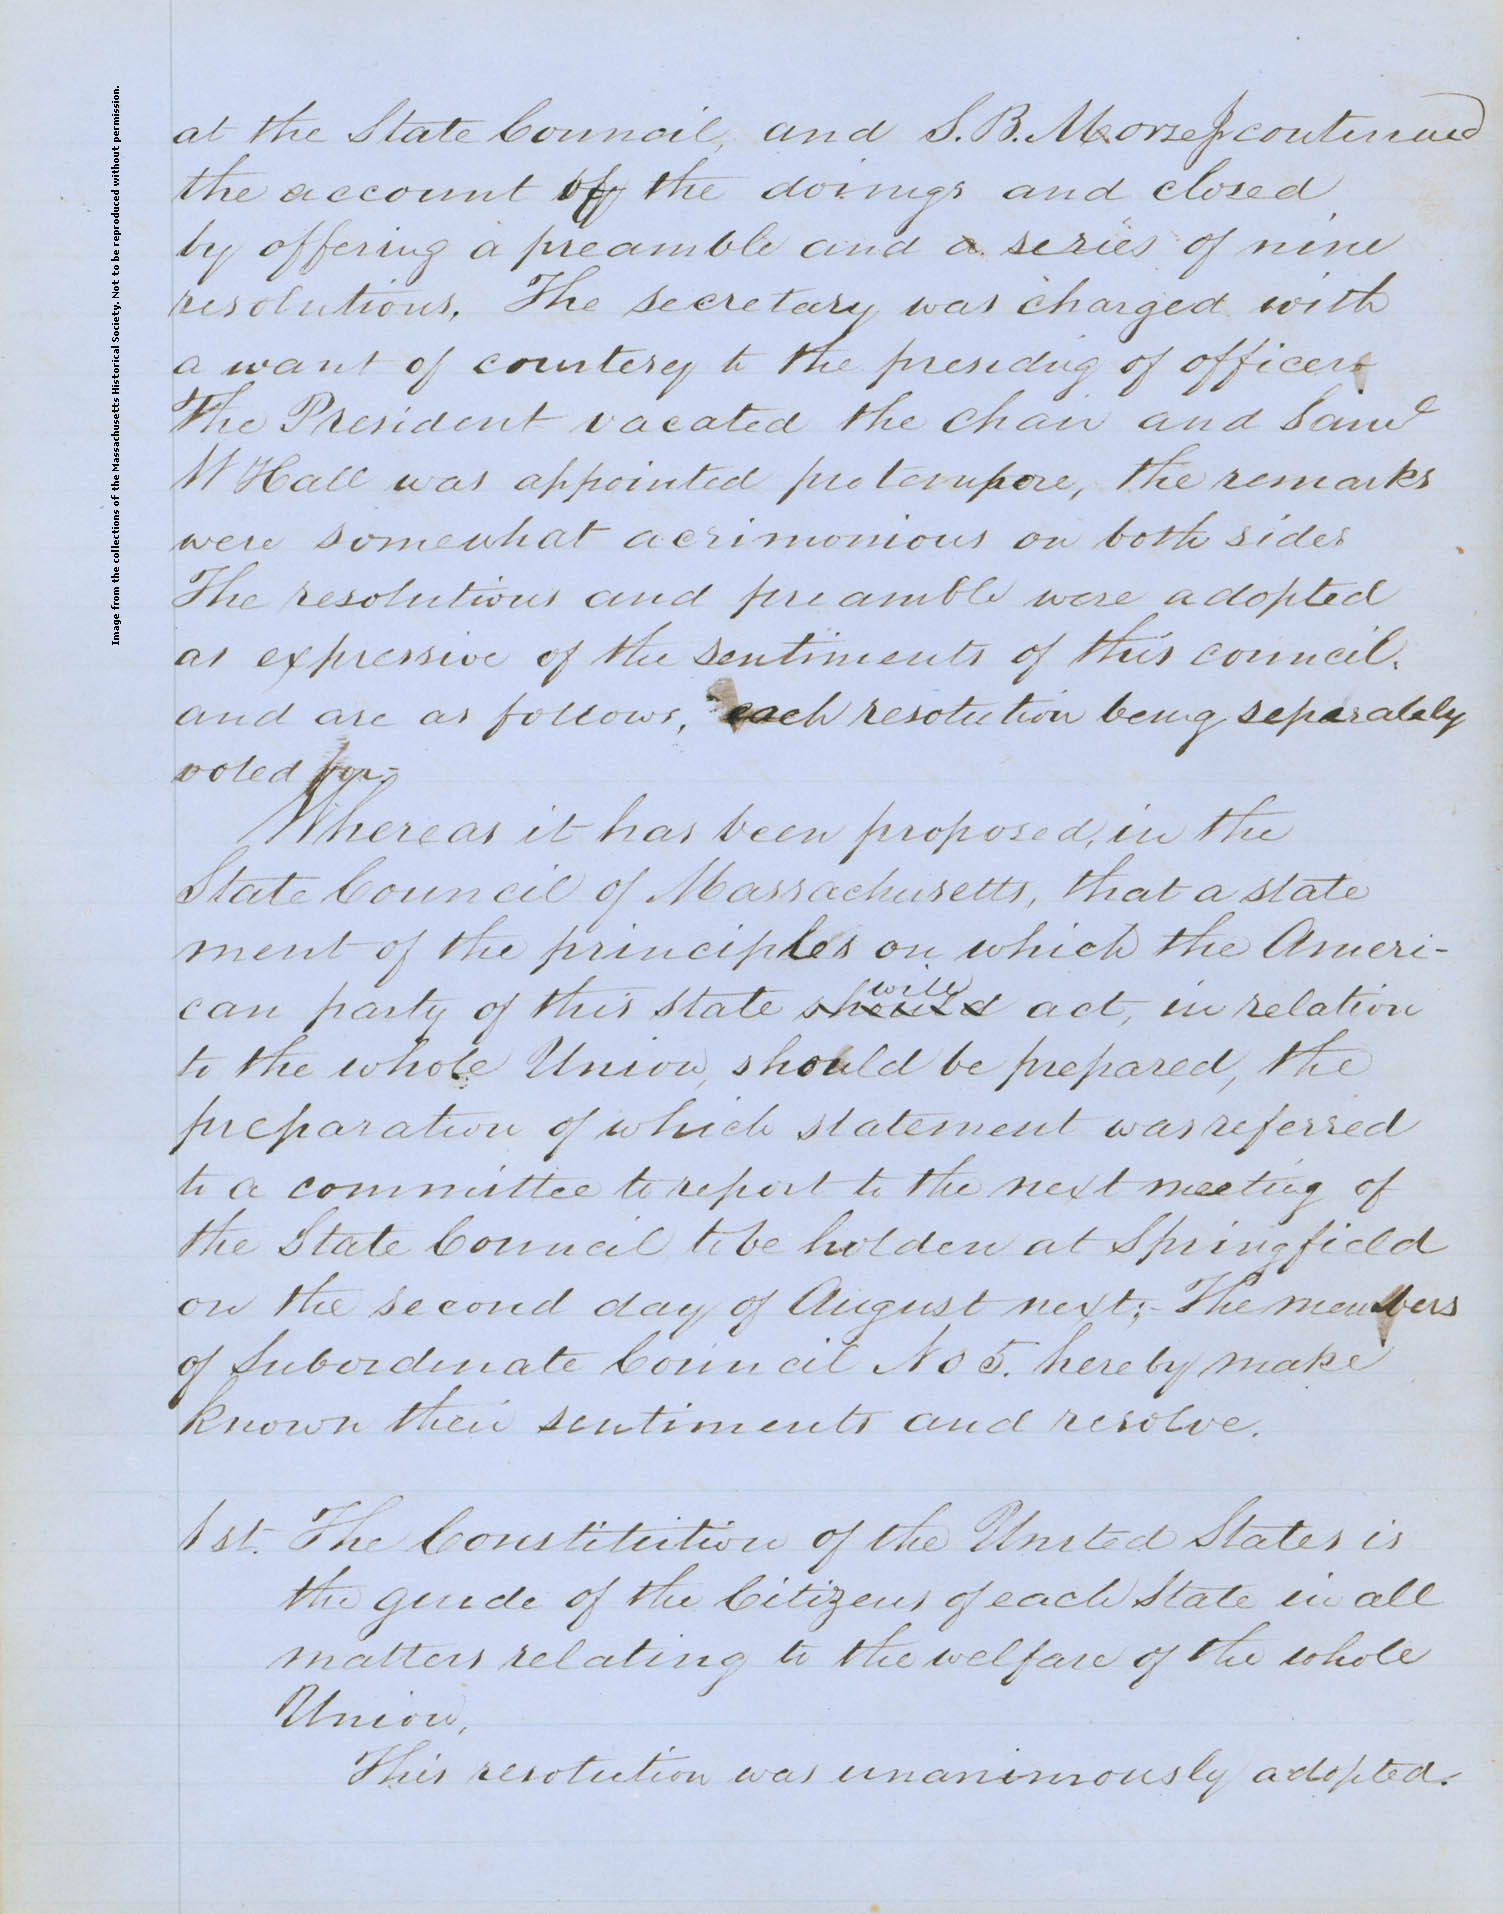 Image from the collections of the Massachusetts Historical Society. Not to be reproduced without permission.
at the State Council, and S. B. Morse Jr continued
the account of the doings and closed
by offering a preamble and a series of nine
resolutions. The secretary was charged with
a want of courtesy to the presiding of officer
The President vacated the chair and Saml
W Hall was appointed protempore, the remarks
were somewhat acrimonious on both sides
The resolutions and preamble were adopted
as expressive of the sentiments of this council.
and are as follows, each resolution being separately
voted for.
Whereas it has been proposed, in the
State Council of Massachusetts, that a state
ment of the principles on which the Ameri-
will
can party of this state should act, in relation
to the whole Union, should be prepared, the
preparation of which statement was referred
to a committee to report to the next meeting of
the State Council to be holden at Springfield
on the second day of August next;- The members
of Subordinate Council No 5. hereby make
known their sentiments and resolve.
1st. The Constitution of the United States is
the guide of the Citizens of each State in all
matters relating to the welfare of the whole
Union,
This resolution was unanimously adopted.